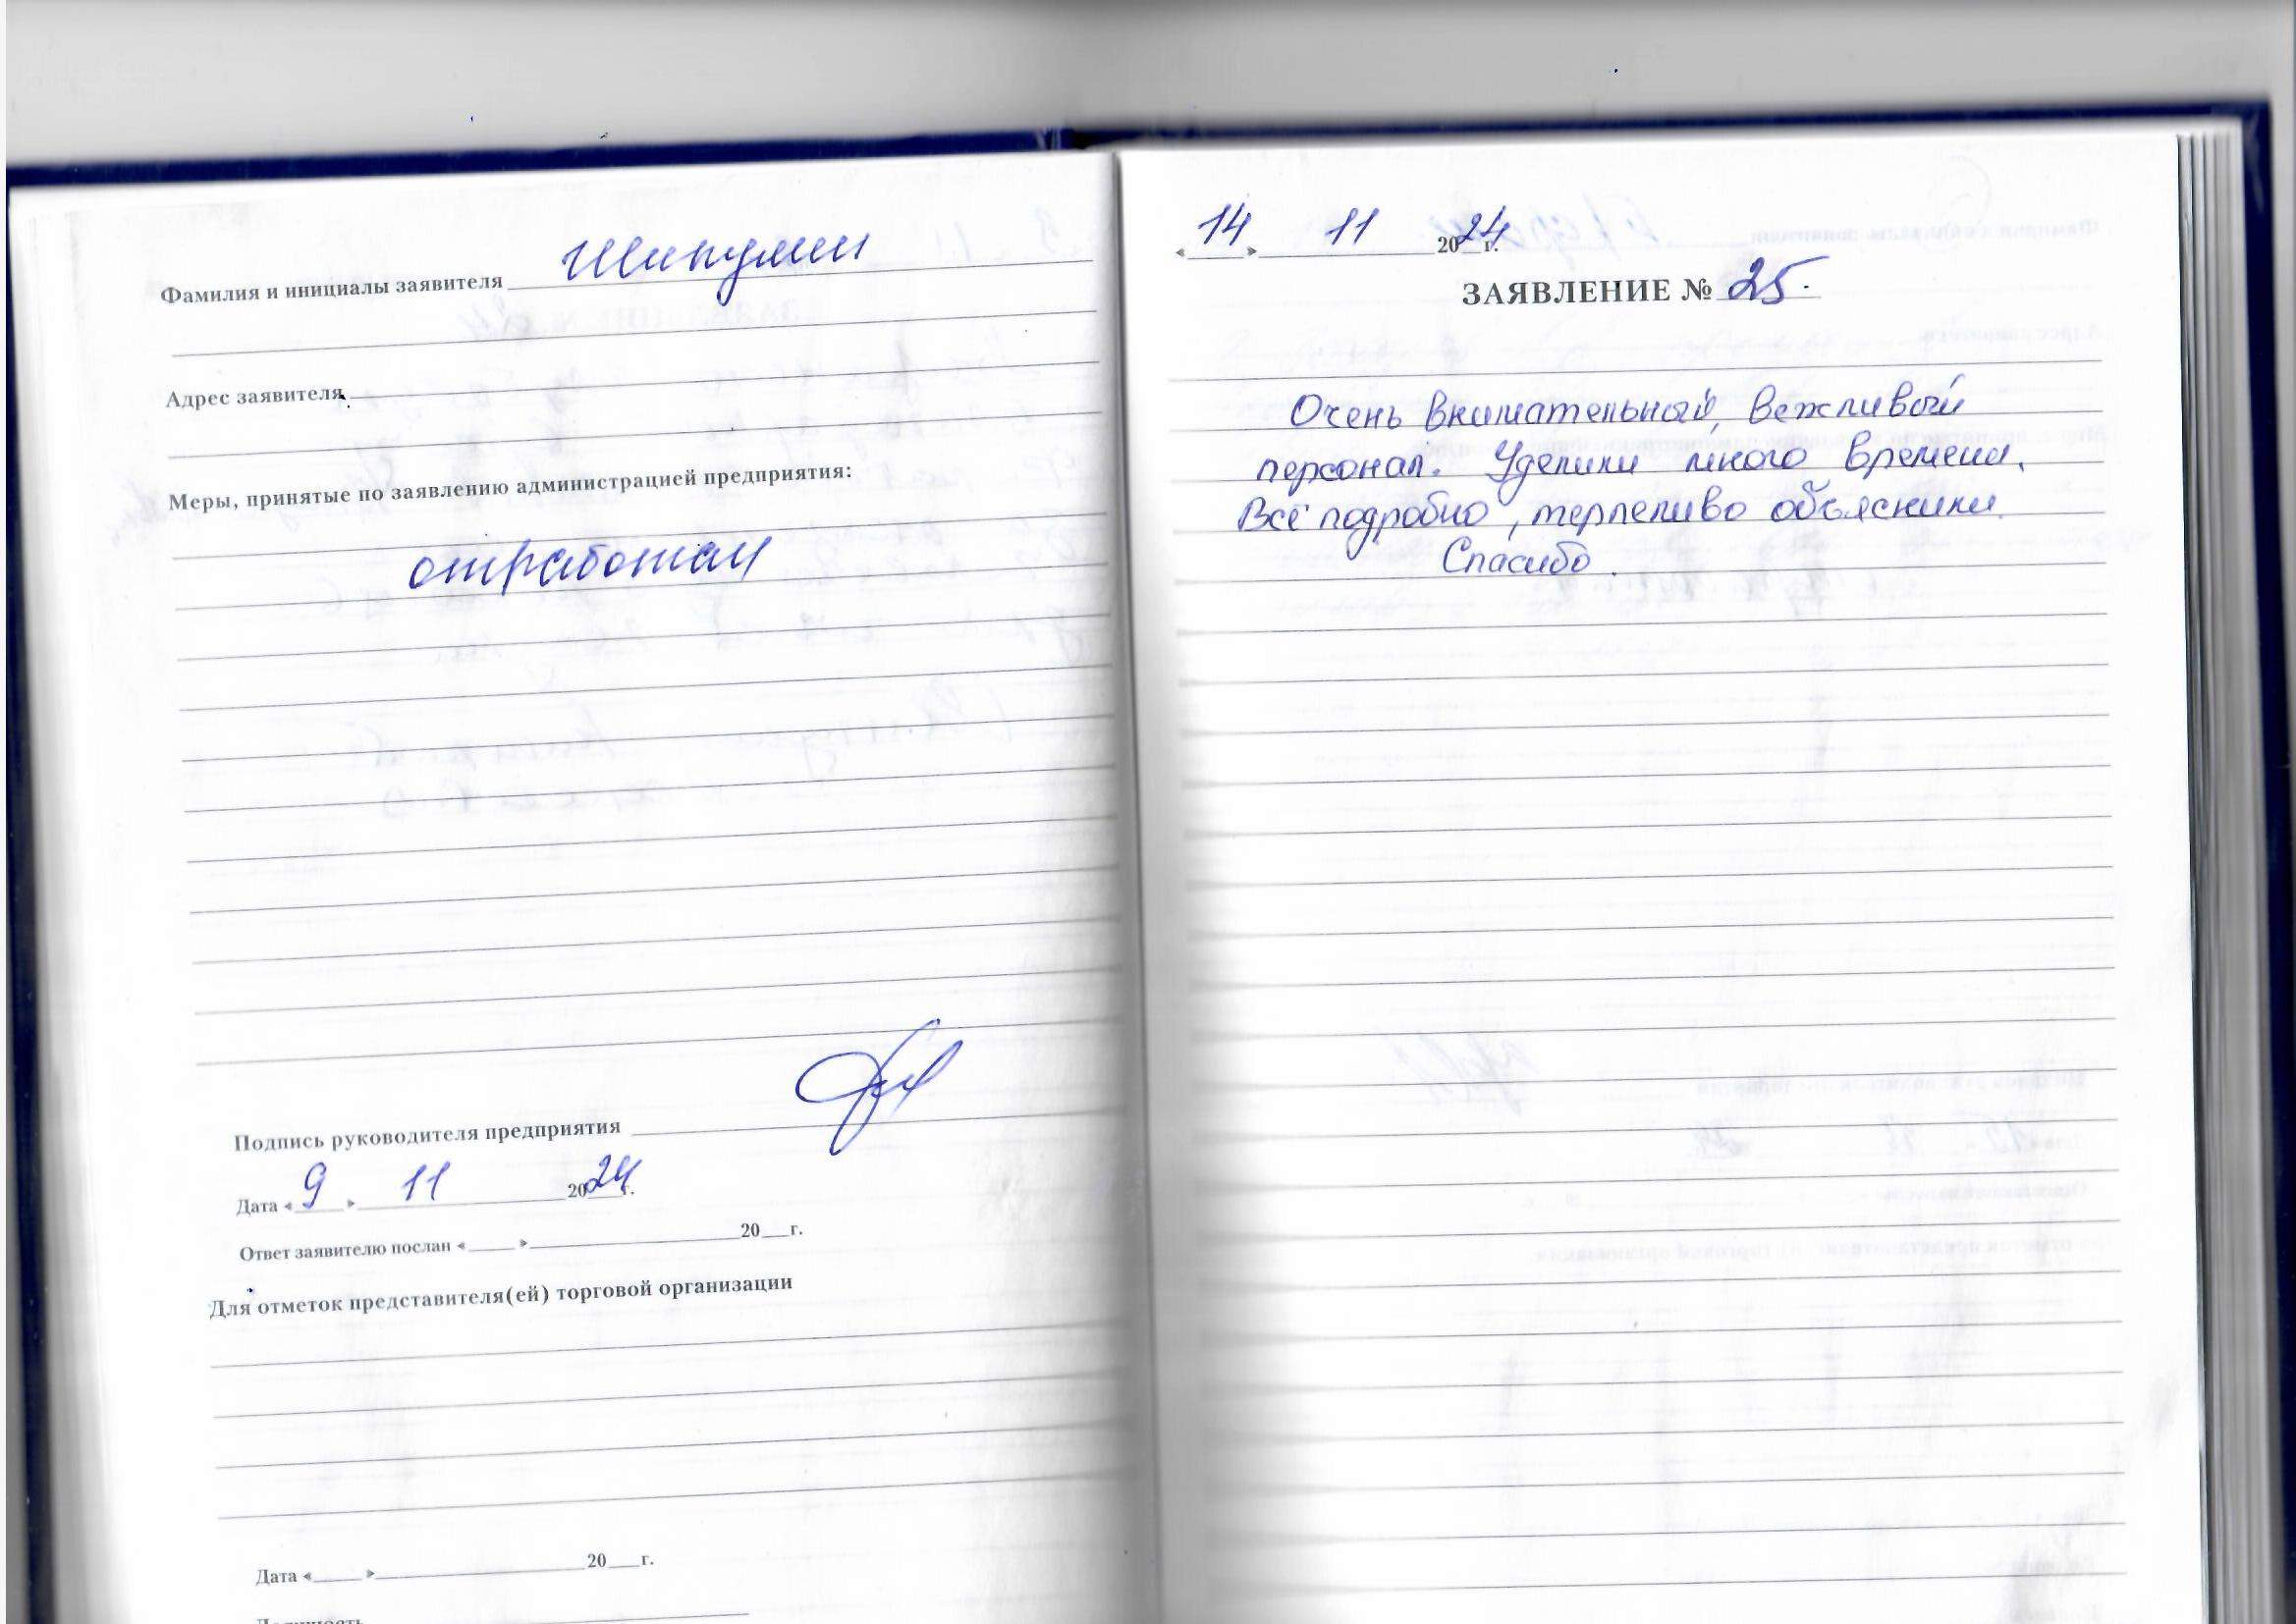 Фамилия и инициалы заявителя Шипулин
Адрес заявителя
Меры, принятые по заявлению администрацией предприятия:
отработан
Подпись руководителя предприятия
Дата « 9 » 11 2024 г.
Ответ заявителю послан «___» ___ 20__ г.
Для отметок представителя(ей) торговой организации
Дата «___» ___ 20__ г.
Должность
« 14 » 11 2024 г.
ЗАЯВЛЕНИЕ № 25.
Очень внимательный, вежливый
персонал. Уделили много времени.
Всё подробно, терпеливо объяснили.
Спасибо.